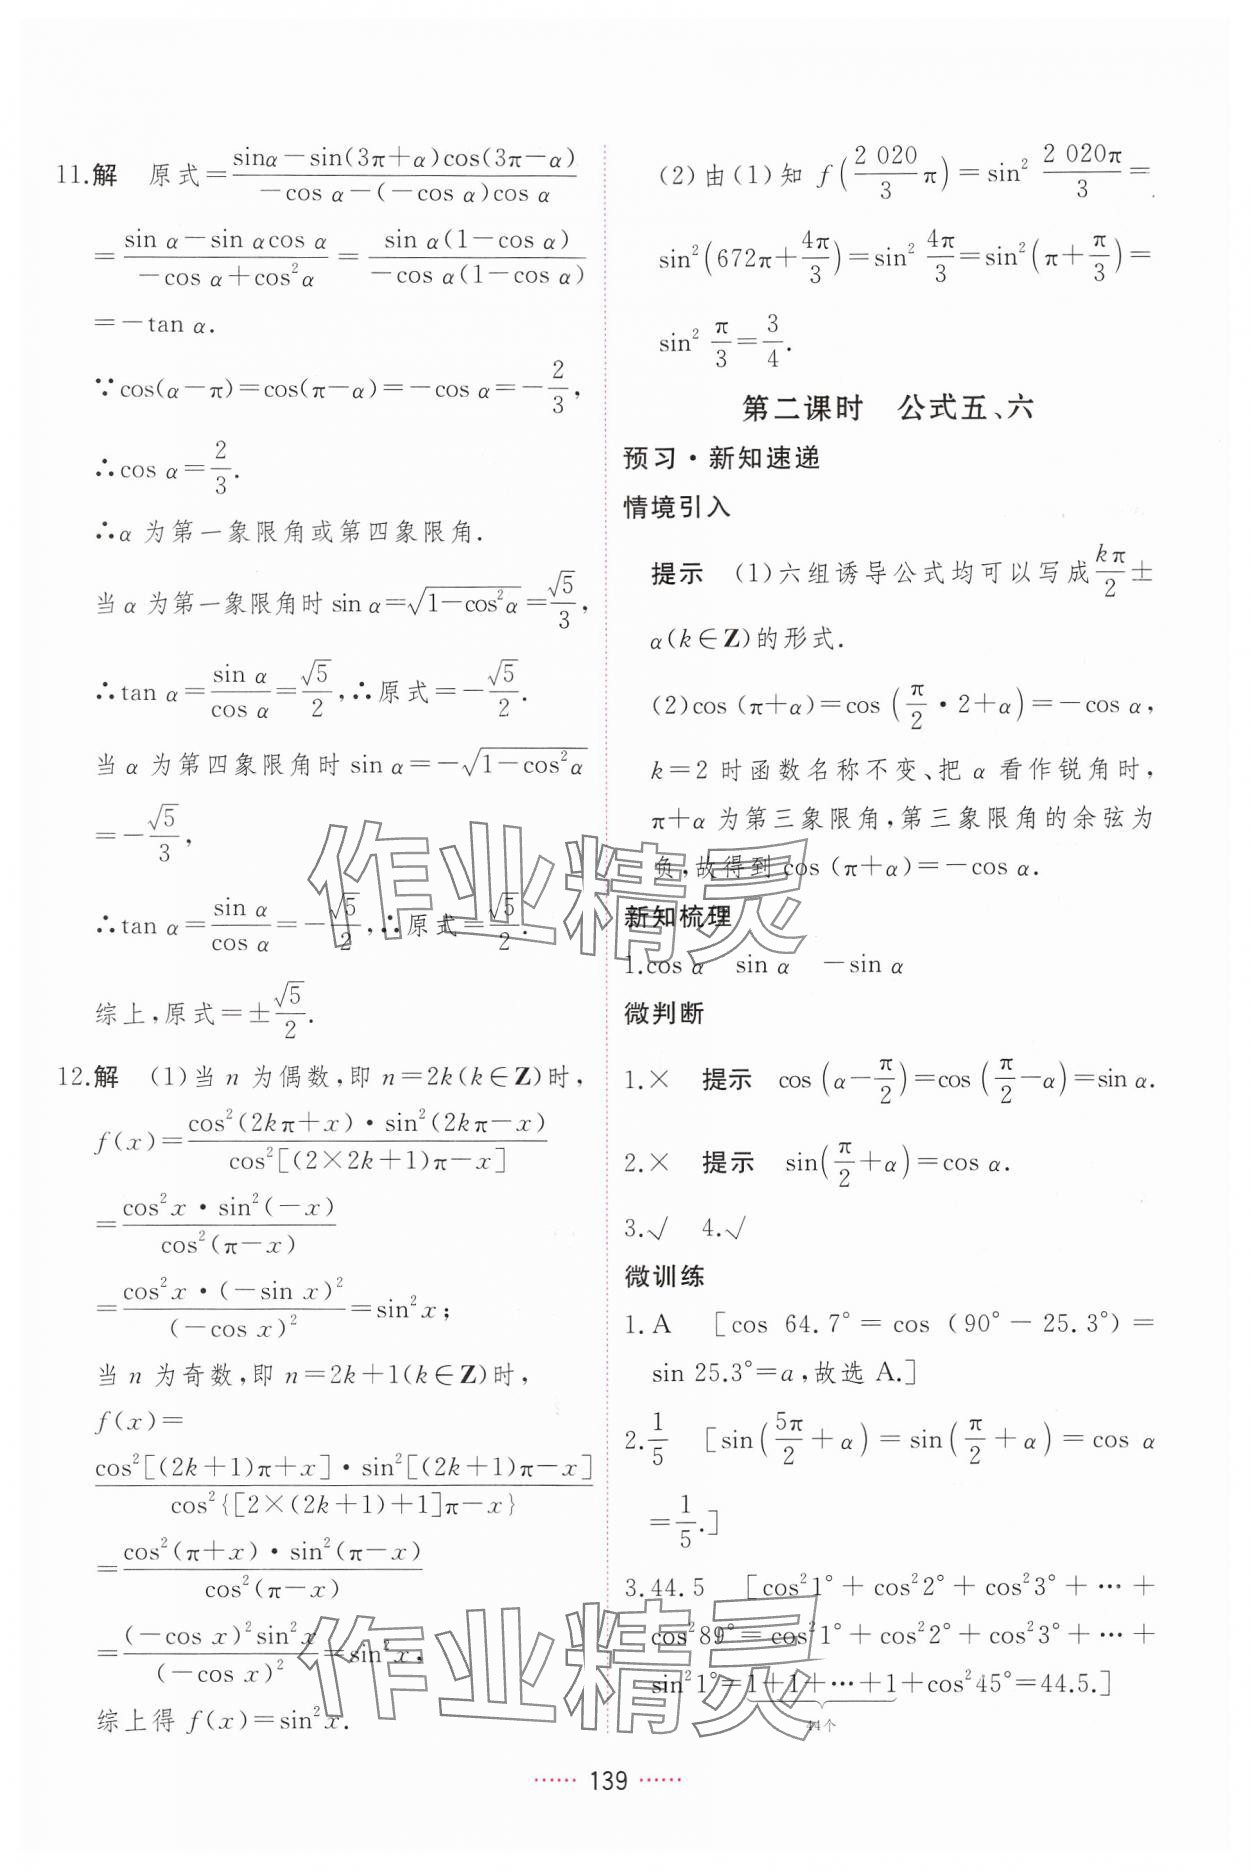 11.解 原式=(sinα−sin(3π+α)cos(3π−α))/(−cos α−(−cos α)cos α)
=(sin α−sin αcos α)/(−cos α+cos²α)=(sin α(1−cos α))/(−cos α(1−cos α))
=−tan α.
∵cos(α−π)=cos(π−α)=−cos α=−2/3,
∴cos α=2/3.
∴α 为第一象限角或第四象限角.
当 α 为第一象限角时 sin α=√(1−cos²α)=√5/3,
∴tan α=sin α/cos α=√5/2,∴原式=−√5/2.
当 α 为第四象限角时 sin α=−√(1−cos²α)
=−√5/3,
∴tan α=sin α/cos α=−√5/2,∴原式=√5/2.
综上,原式=±√5/2.
12.解 (1)当 n 为偶数,即 n=2k(k∈Z)时,
f(x)=(cos²(2kπ+x)·sin²(2kπ−x))/(cos²[(2×2k+1)π−x])
=(cos²x·sin²(−x))/(cos²(π−x))
=(cos²x·(−sin x)²)/((−cos x)²)=sin²x;
当 n 为奇数,即 n=2k+1(k∈Z)时,
f(x)=
(cos²[(2k+1)π+x]·sin²[(2k+1)π−x])/(cos²{[2×(2k+1)+1]π−x})
=(cos²(π+x)·sin²(π−x))/(cos²(π−x))
=((−cos x)²sin²x)/((−cos x)²)=sin²x,
综上得 f(x)=sin²x.
(2)由(1)知 f(2 020/3 π)=sin² 2 020π/3=
sin²(672π+4π/3)=sin² 4π/3=sin²(π+π/3)=
sin² π/3=3/4.
第二课时 公式五、六
预习·新知速递
情境引入
提示 (1)六组诱导公式均可以写成kπ/2±
α(k∈Z)的形式.
(2)cos (π+α)=cos (π/2·2+α)=−cos α,
k=2 时函数名称不变、把 α 看作锐角时,
π+α 为第三象限角,第三象限角的余弦为
负,故得到 cos (π+α)=−cos α.
新知梳理
1.cos α sin α −sin α
微判断
1.× 提示 cos (α−π/2)=cos (π/2−α)=sin α.
2.× 提示 sin(π/2+α)=cos α.
3.√ 4.√
微训练
1.A [cos 64.7°=cos (90°−25.3°)=
sin 25.3°=a,故选 A.]
2.1/5 [sin(5π/2+α)=sin(π/2+α)=cos α
=1/5.]
3.44.5 [cos²1°+cos²2°+cos²3°+…+
cos²89°=cos²1°+cos²2°+cos²3°+…+
sin²1°=1+1+…+1+cos²45°=44.5.]
44个
…… 139 ……
作业精灵
作业精灵